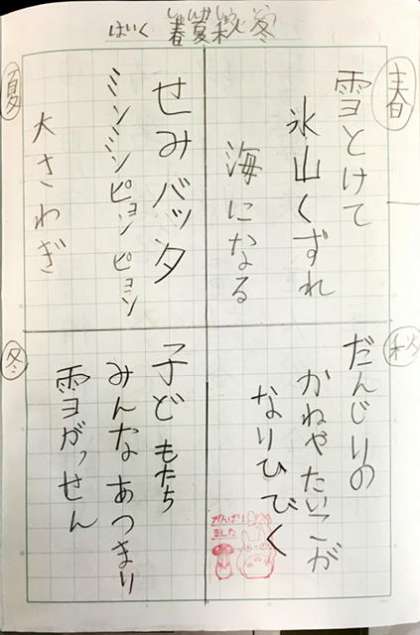 はいく 春夏秋冬
しゅんかしゅうとう
春
雪とけて
氷山くずれ
海になる
夏
せみバッタ
ミンミンピョンピョン
大さわぎ
秋
だんじりの
かねやたいこが
なりひびく
冬
子どもたち
みんなあつまり
雪がっせん
がんばり
ました